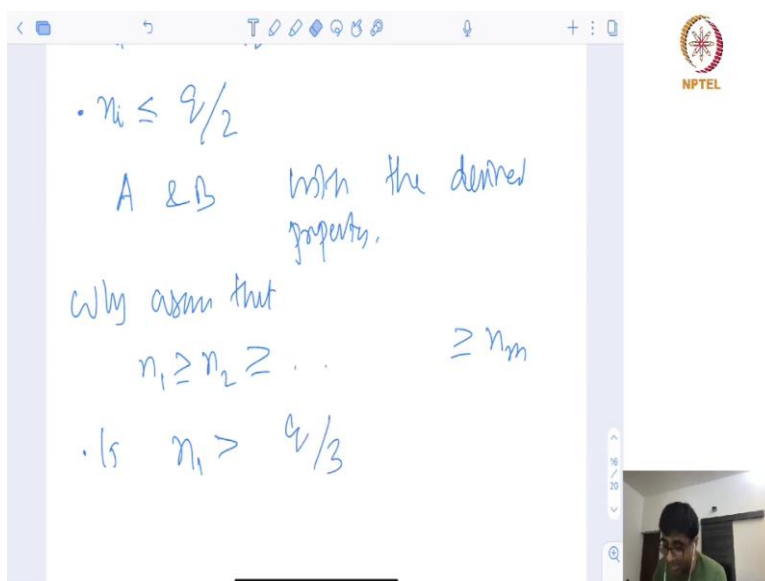 • n_i ≤ q/2
A & B with the desired
property.
Wlog assum that
n_1 ≥ n_2 ≥ . . ≥ n_m
• Is n_1 > q/3
NPTEL
16
/
20